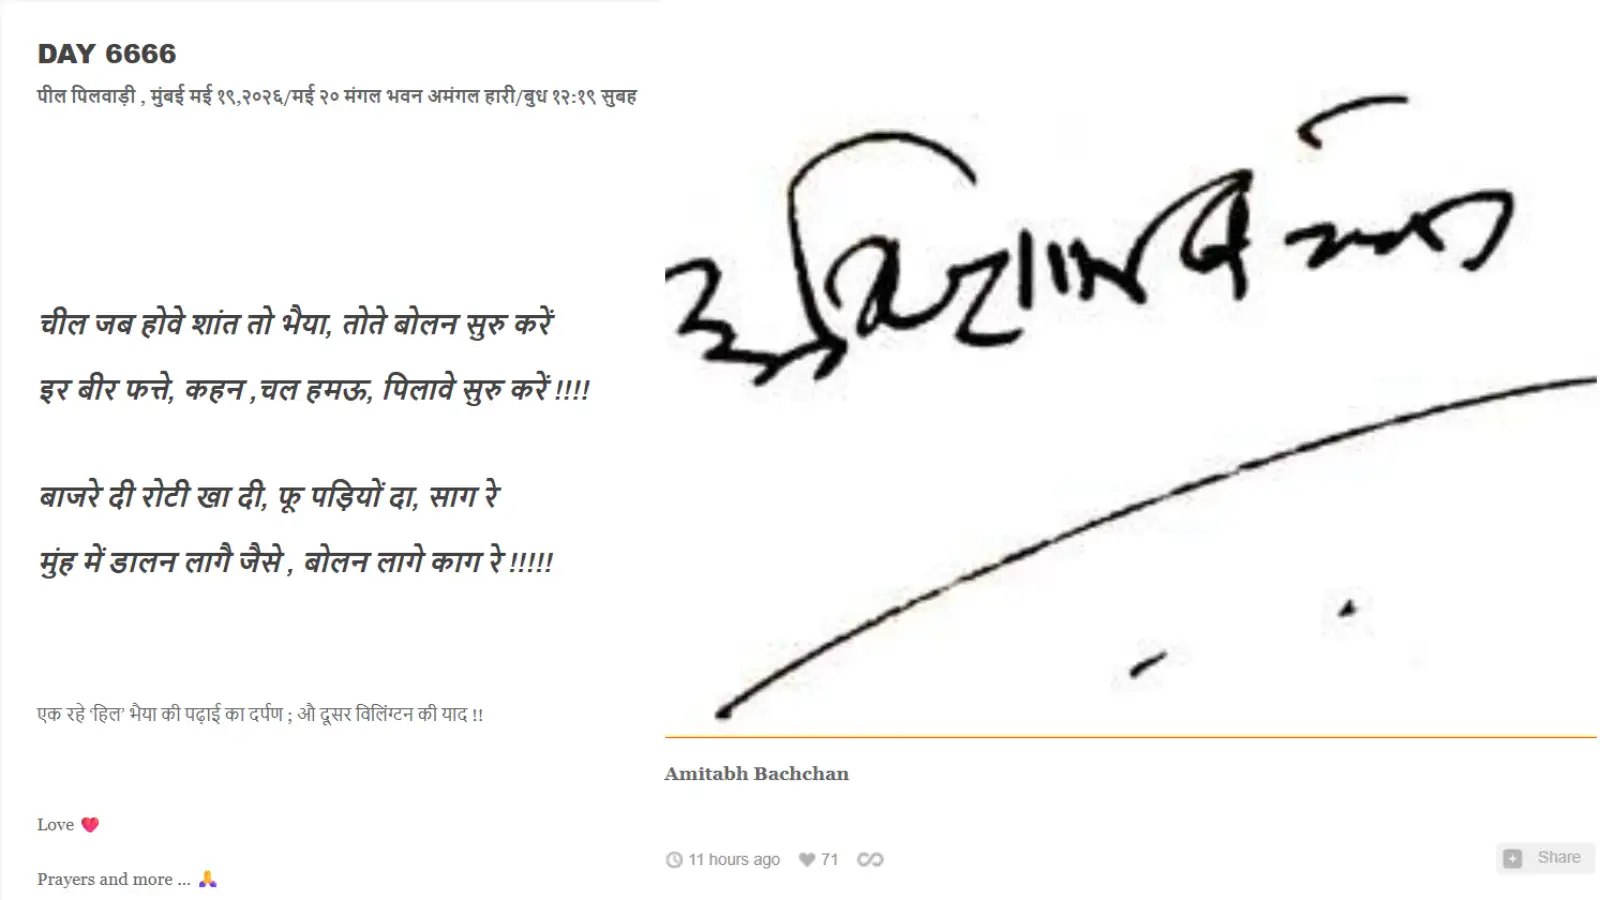 DAY 6666
पील पिलवाड़ी , मुंबई मई १९,२०२६/मई २० मंगल भवन अमंगल हारी/बुध १२:१९ सुबह
चील जब होवे शांत तो भैया, तोते बोलन सुरु करें
इर बीर फत्ते, कहन ,चल हमऊ, पिलावे सुरु करें !!!!
बाजरे दी रोटी खा दी, फू पड़ियों दा, साग रे
मुंह में डालन लागै जैसे , बोलन लागे काग रे !!!!!
एक रहे ‘हिल’ भैया की पढ़ाई का दर्पण ; औ दूसर विलिंग्टन की याद !!
Love ❤️
Prayers and more ... 🙏
Amitabh Bachchan
11 hours ago 71
Share